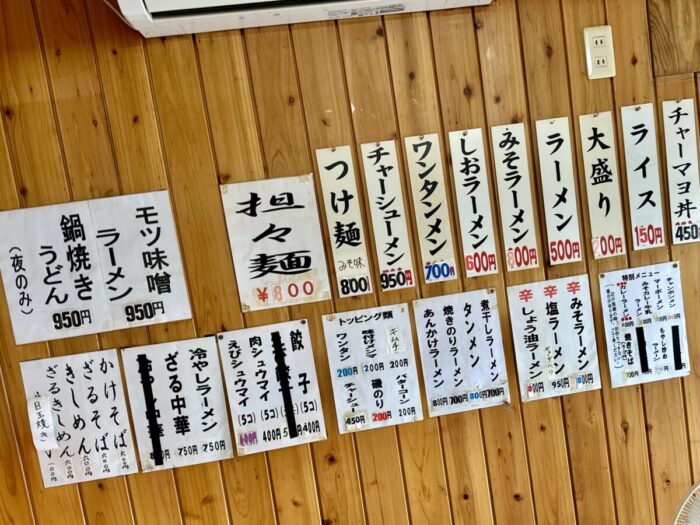 チャーマヨ丼 450
ライス 150円
大盛り 200円
ラーメン 500円
みそラーメン 800円
しおラーメン 600円
ワンタンメン 700円
チャーシューメン 950円
つけ麺 みそ味 800円
担々麺
¥800
モツ味噌
ラーメン 950円
鍋焼き
うどん 950円
(夜のみ)
特別メニュー
チャンポンメン
マーボーメン
みそカレー牛乳
カレーラーメン
もやし炒め
ラーメン
焼きそば
辛 みそラーメン 800円
辛 塩ラーメン 950円
辛 しょう油ラーメン 800円
煮干しラーメン 700円
タンメン 800円
焼きのりラーメン 700円
あんかけラーメン 800円
トッピング類
キムチ 200円
味付メンマ 200円
ワンタン 200円
バターコーン 200円
磯のり 200円
チャーシュー 450円
餃子 (5コ) 400円
肉シュウマイ (5コ) 400円
えびシュウマイ (5コ) 400円
冷やしラーメン 750円
ざる中華 750円
かけそば 六〇円
ざるそば 六〇〇円
きしめん 六〇〇円
ざるきしめん 六〇〇円